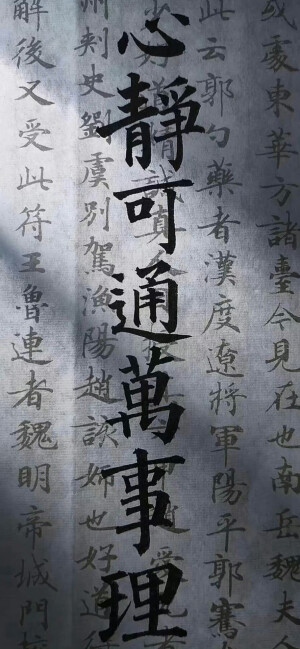 或處東華方諸臺今見在也南岳魏夫
此云郭勺藥者漢度遼將軍陽平郭騫
心靜可通萬事理
州刺史劉虞別駕漁陽趙該姊也好道得
解後又受此符王魯連者魏明帝城門校